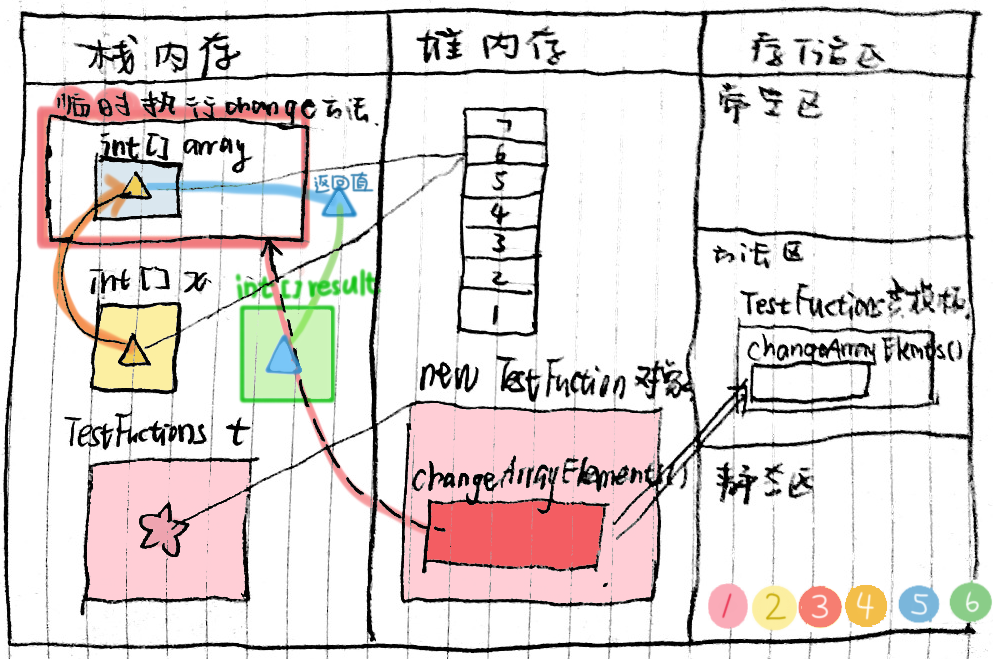 栈内存
堆内存
临时执行change方法
int[] array
返回值
int[] x
int[] result
TestFuctions t
7
6
5
4
3
2
1
new TestFuction 对象
changeArrayElements()
常量区
方法区
TestFuctions类模板
changeArrayElemts()
静态区
1 2 3 4 5 6